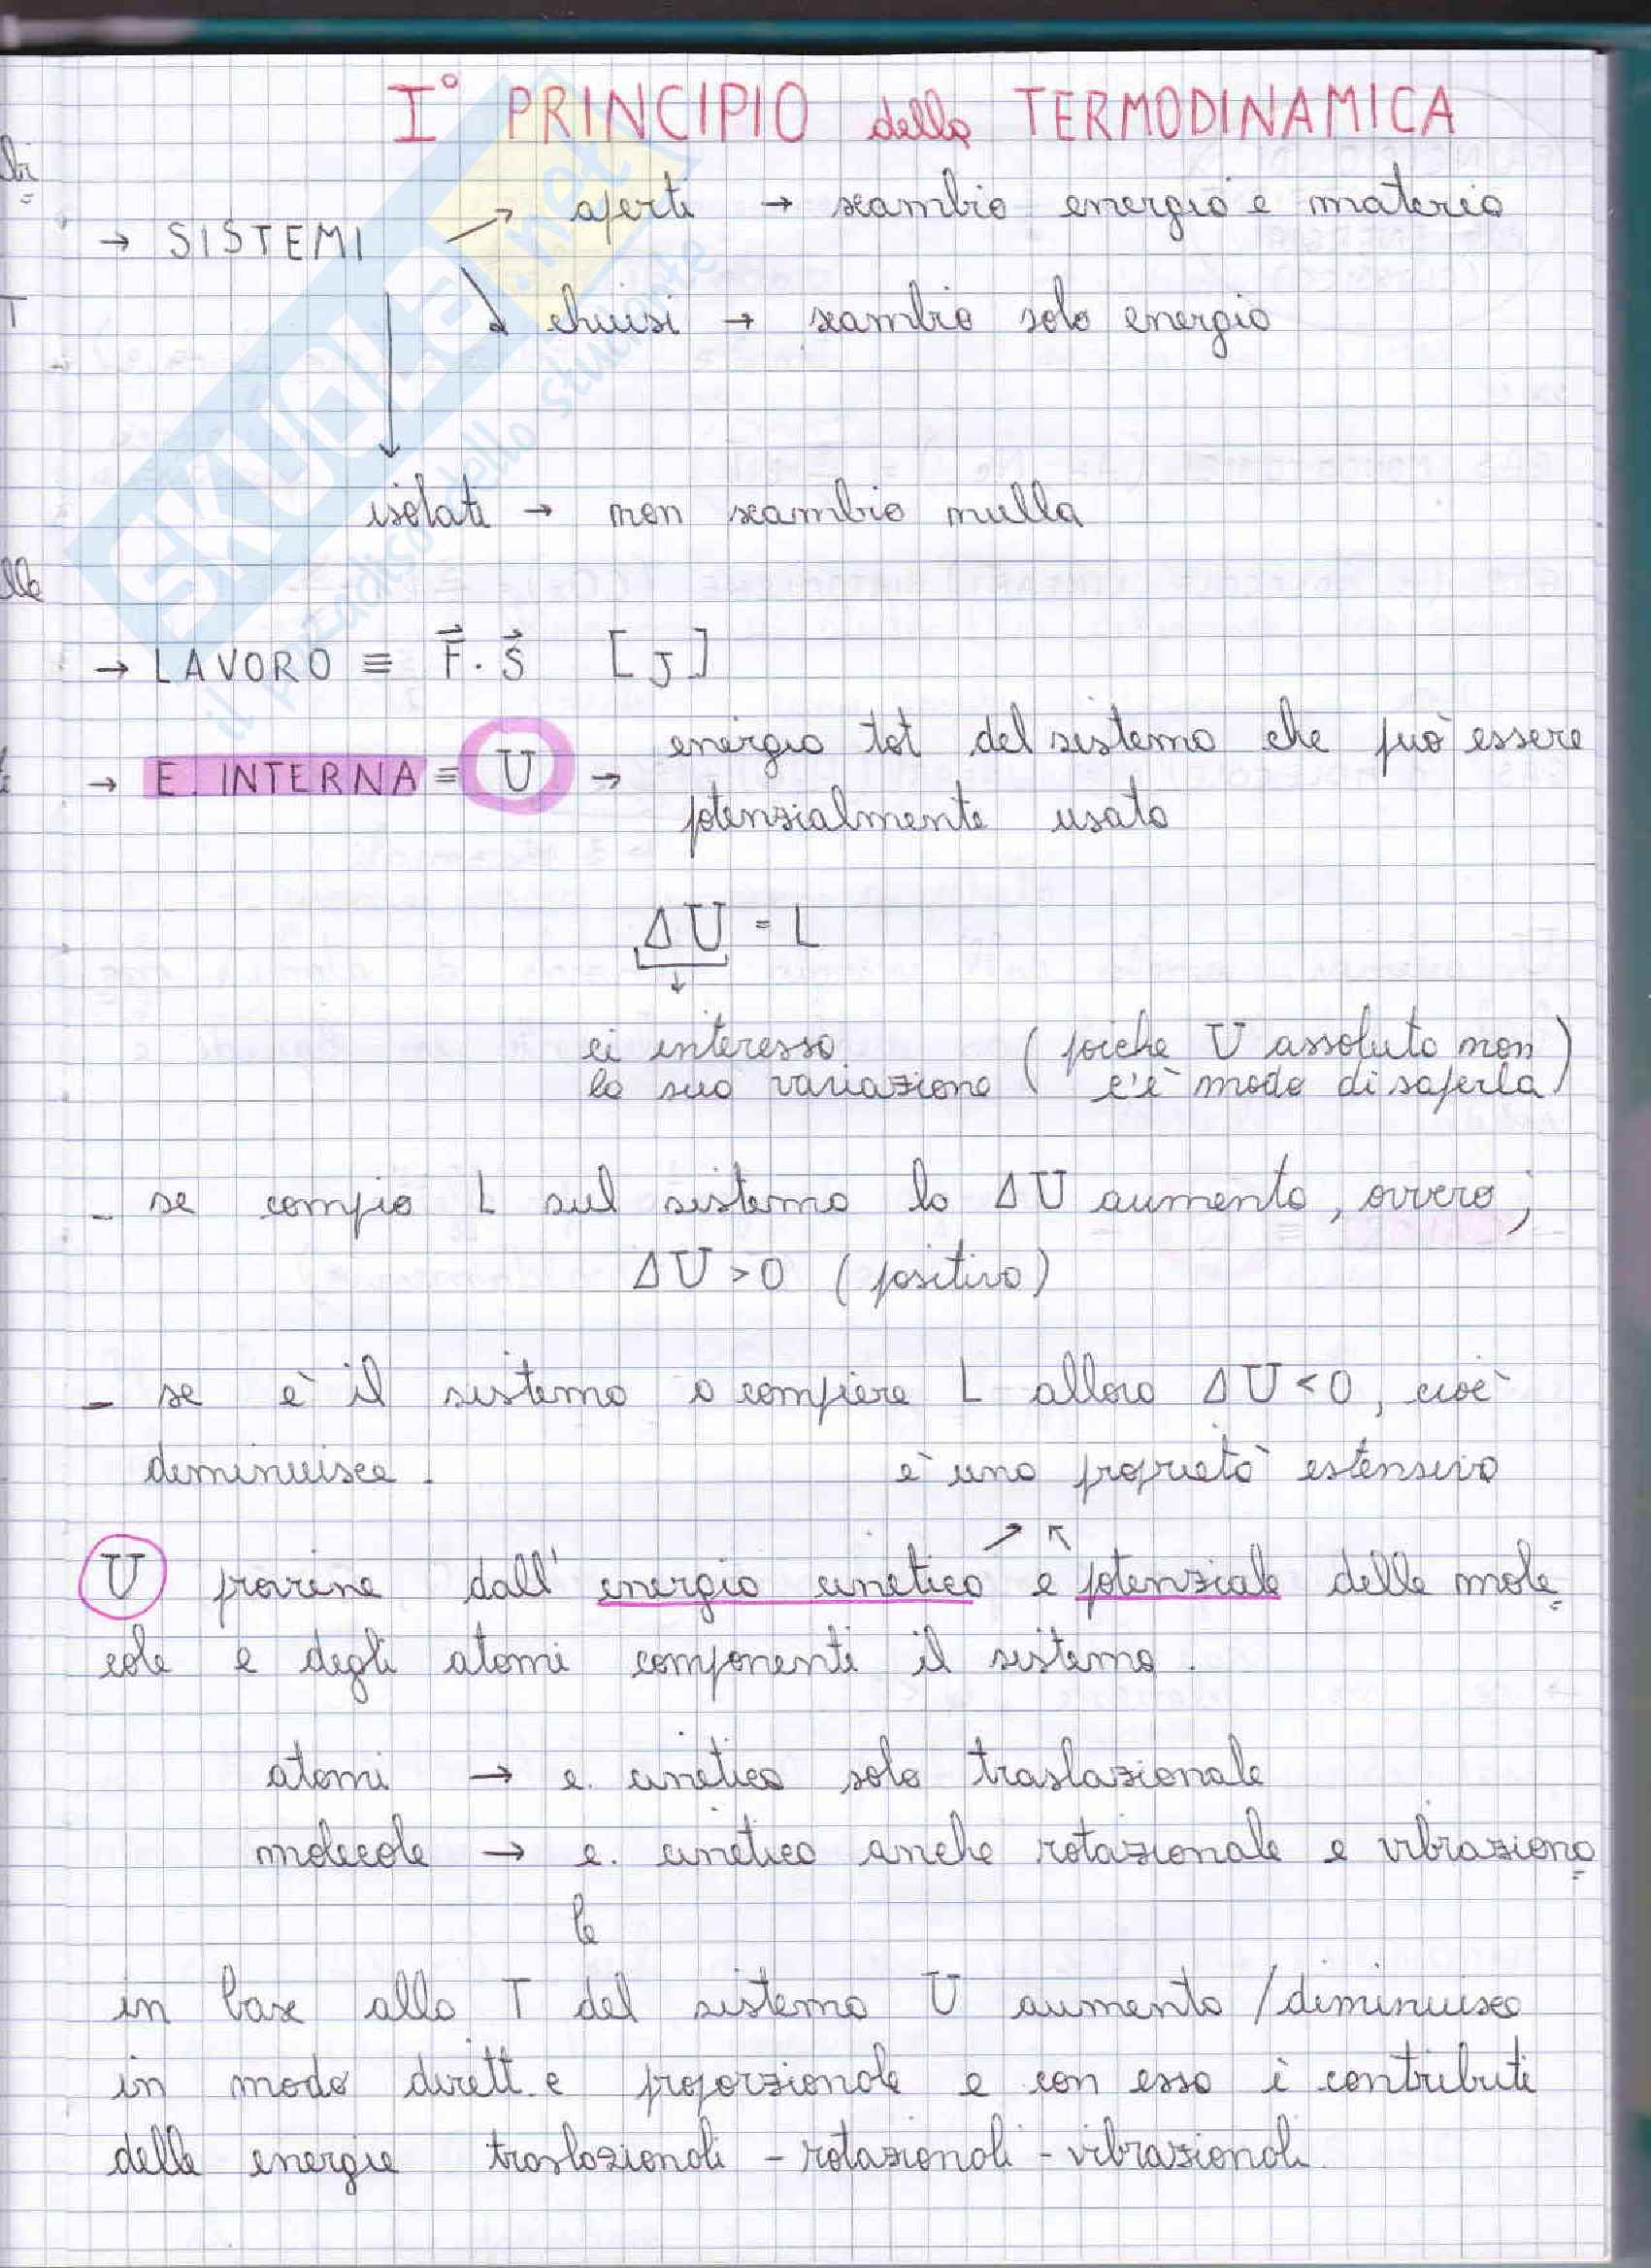 I° PRINCIPIO della TERMODINAMICA
aperti → scambia energia e materia
→ SISTEMI
chiusi → scambia solo energia
isolati → non scambia nulla
→ LAVORO ≡ F⃗ · S⃗ [J]
→ E. INTERNA ≡ U → energia tot del sistema che può essere
potenzialmente usata
ΔU = L
ci interessa (poiche U assoluta non
la sua variazione c'è modo di saperla)
- se compio L sul sistema la ΔU aumenta, ovvero;
ΔU > 0 (positivo)
- se è il sistema a compiere L allora ΔU < 0, cioè
diminuisce. è una proprietà estensiva
U proviene dall'energia cinetica e potenziale delle mole=
cole e degli atomi componenti il sistema.
atomi → e. cinetica solo traslazionale
molecole → e. cinetica anche rotazionale e vibraziona=
le
in base alla T del sistema U aumenta/diminuisce
in modo dirett.e proporzionale e con essa i contributi
delle energie traslazionali - rotazionali - vibrazionali.
SKUOLA.net
il paradiso dello studente
lle
T